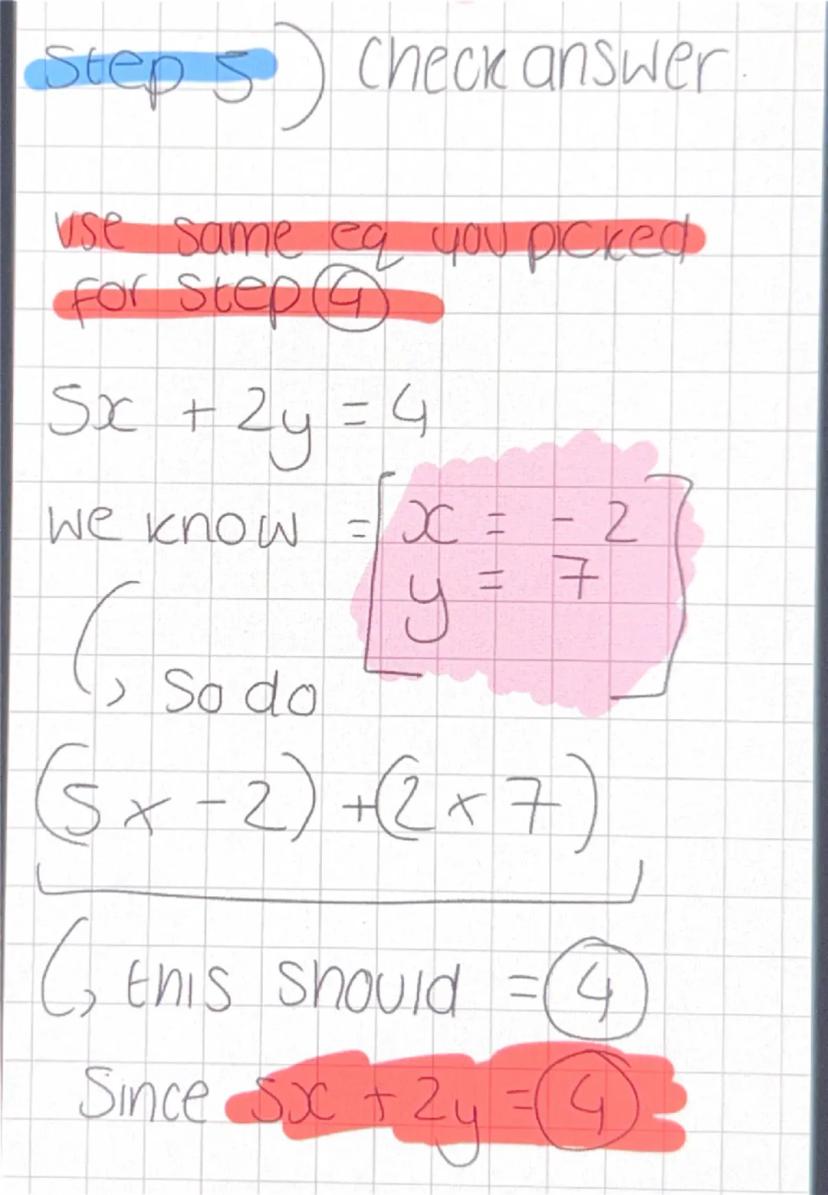 Step 5) Check answer.
Use same eq you picked
for Step ④
5x + 2y = 4
we know = [x = -2
y = 7]
↳ So do
(5 x -2) + (2 x 7)
↳ this should = ④
Since 5x + 2y = ④